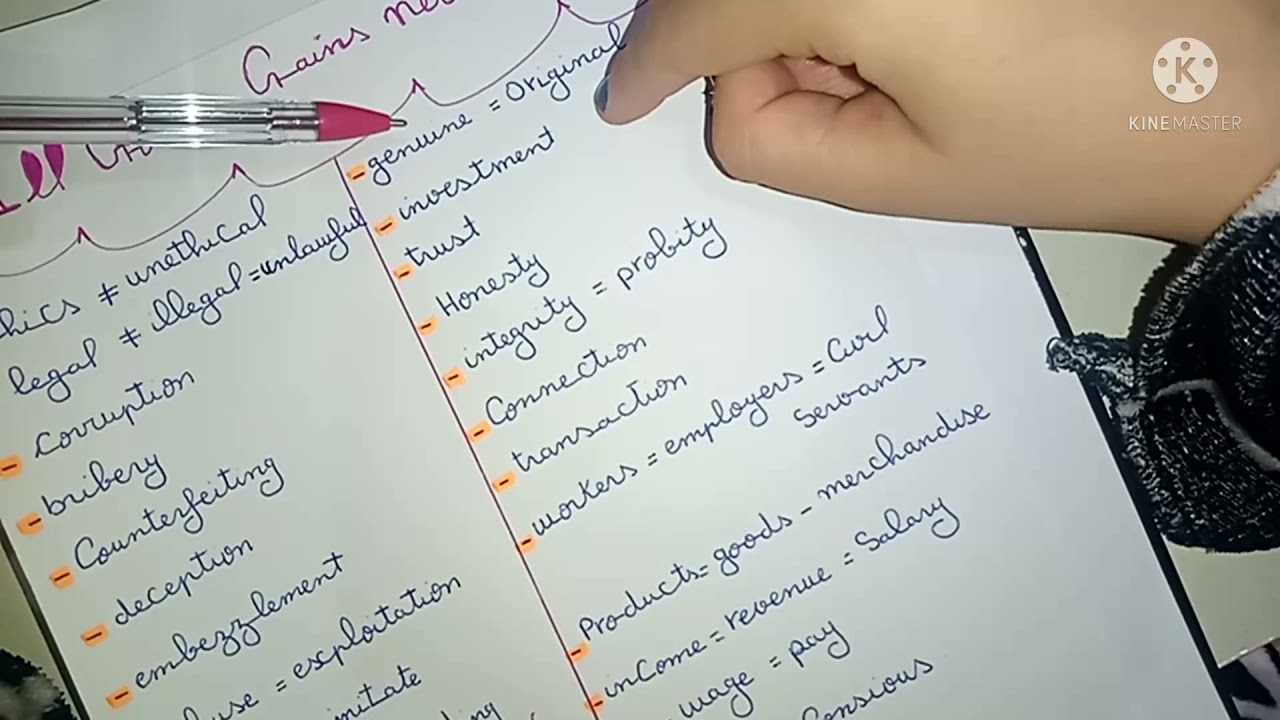 Gains
All
hics ≠ unethical
legal ≠ illegal = unlawful
- corruption
- bribery
- Counterfeiting
- deception
- embezzlement
use = exploitation
mitate
- genuine = Original
- investment
- trust
- Honesty
- integrity = probity
- Connection
- transaction
- workers = employers = Civil
servants
- Products = goods - merchandise
- inCome = revenue = Salary
wage = pay
Consious
KINEMASTER